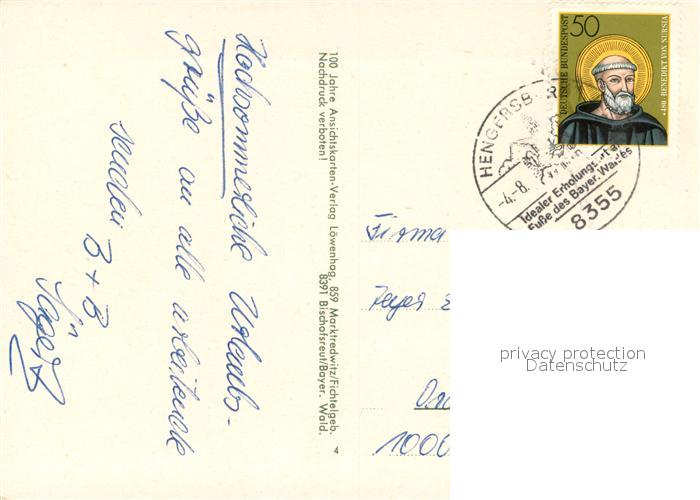 Hochsommerliche Urlaubs-
grüße an alle arbeitende
senden
B + B
100 Jahre Ansichtskarten-Verlag Löwenhag, 859 Marktredwitz/Fichtelgeb.
Nachdruck verboten! 8391 Bischofsreut/Bayer. Wald.
4
50
DEUTSCHE BUNDESPOST
*480 · BENEDIKT VON NURSIA
HENGERSB
-4.-8.
Idealer Erholungsort am
Fuße des Bayer. Waldes
8355
Firma
1000
privacy protection
Datenschutz